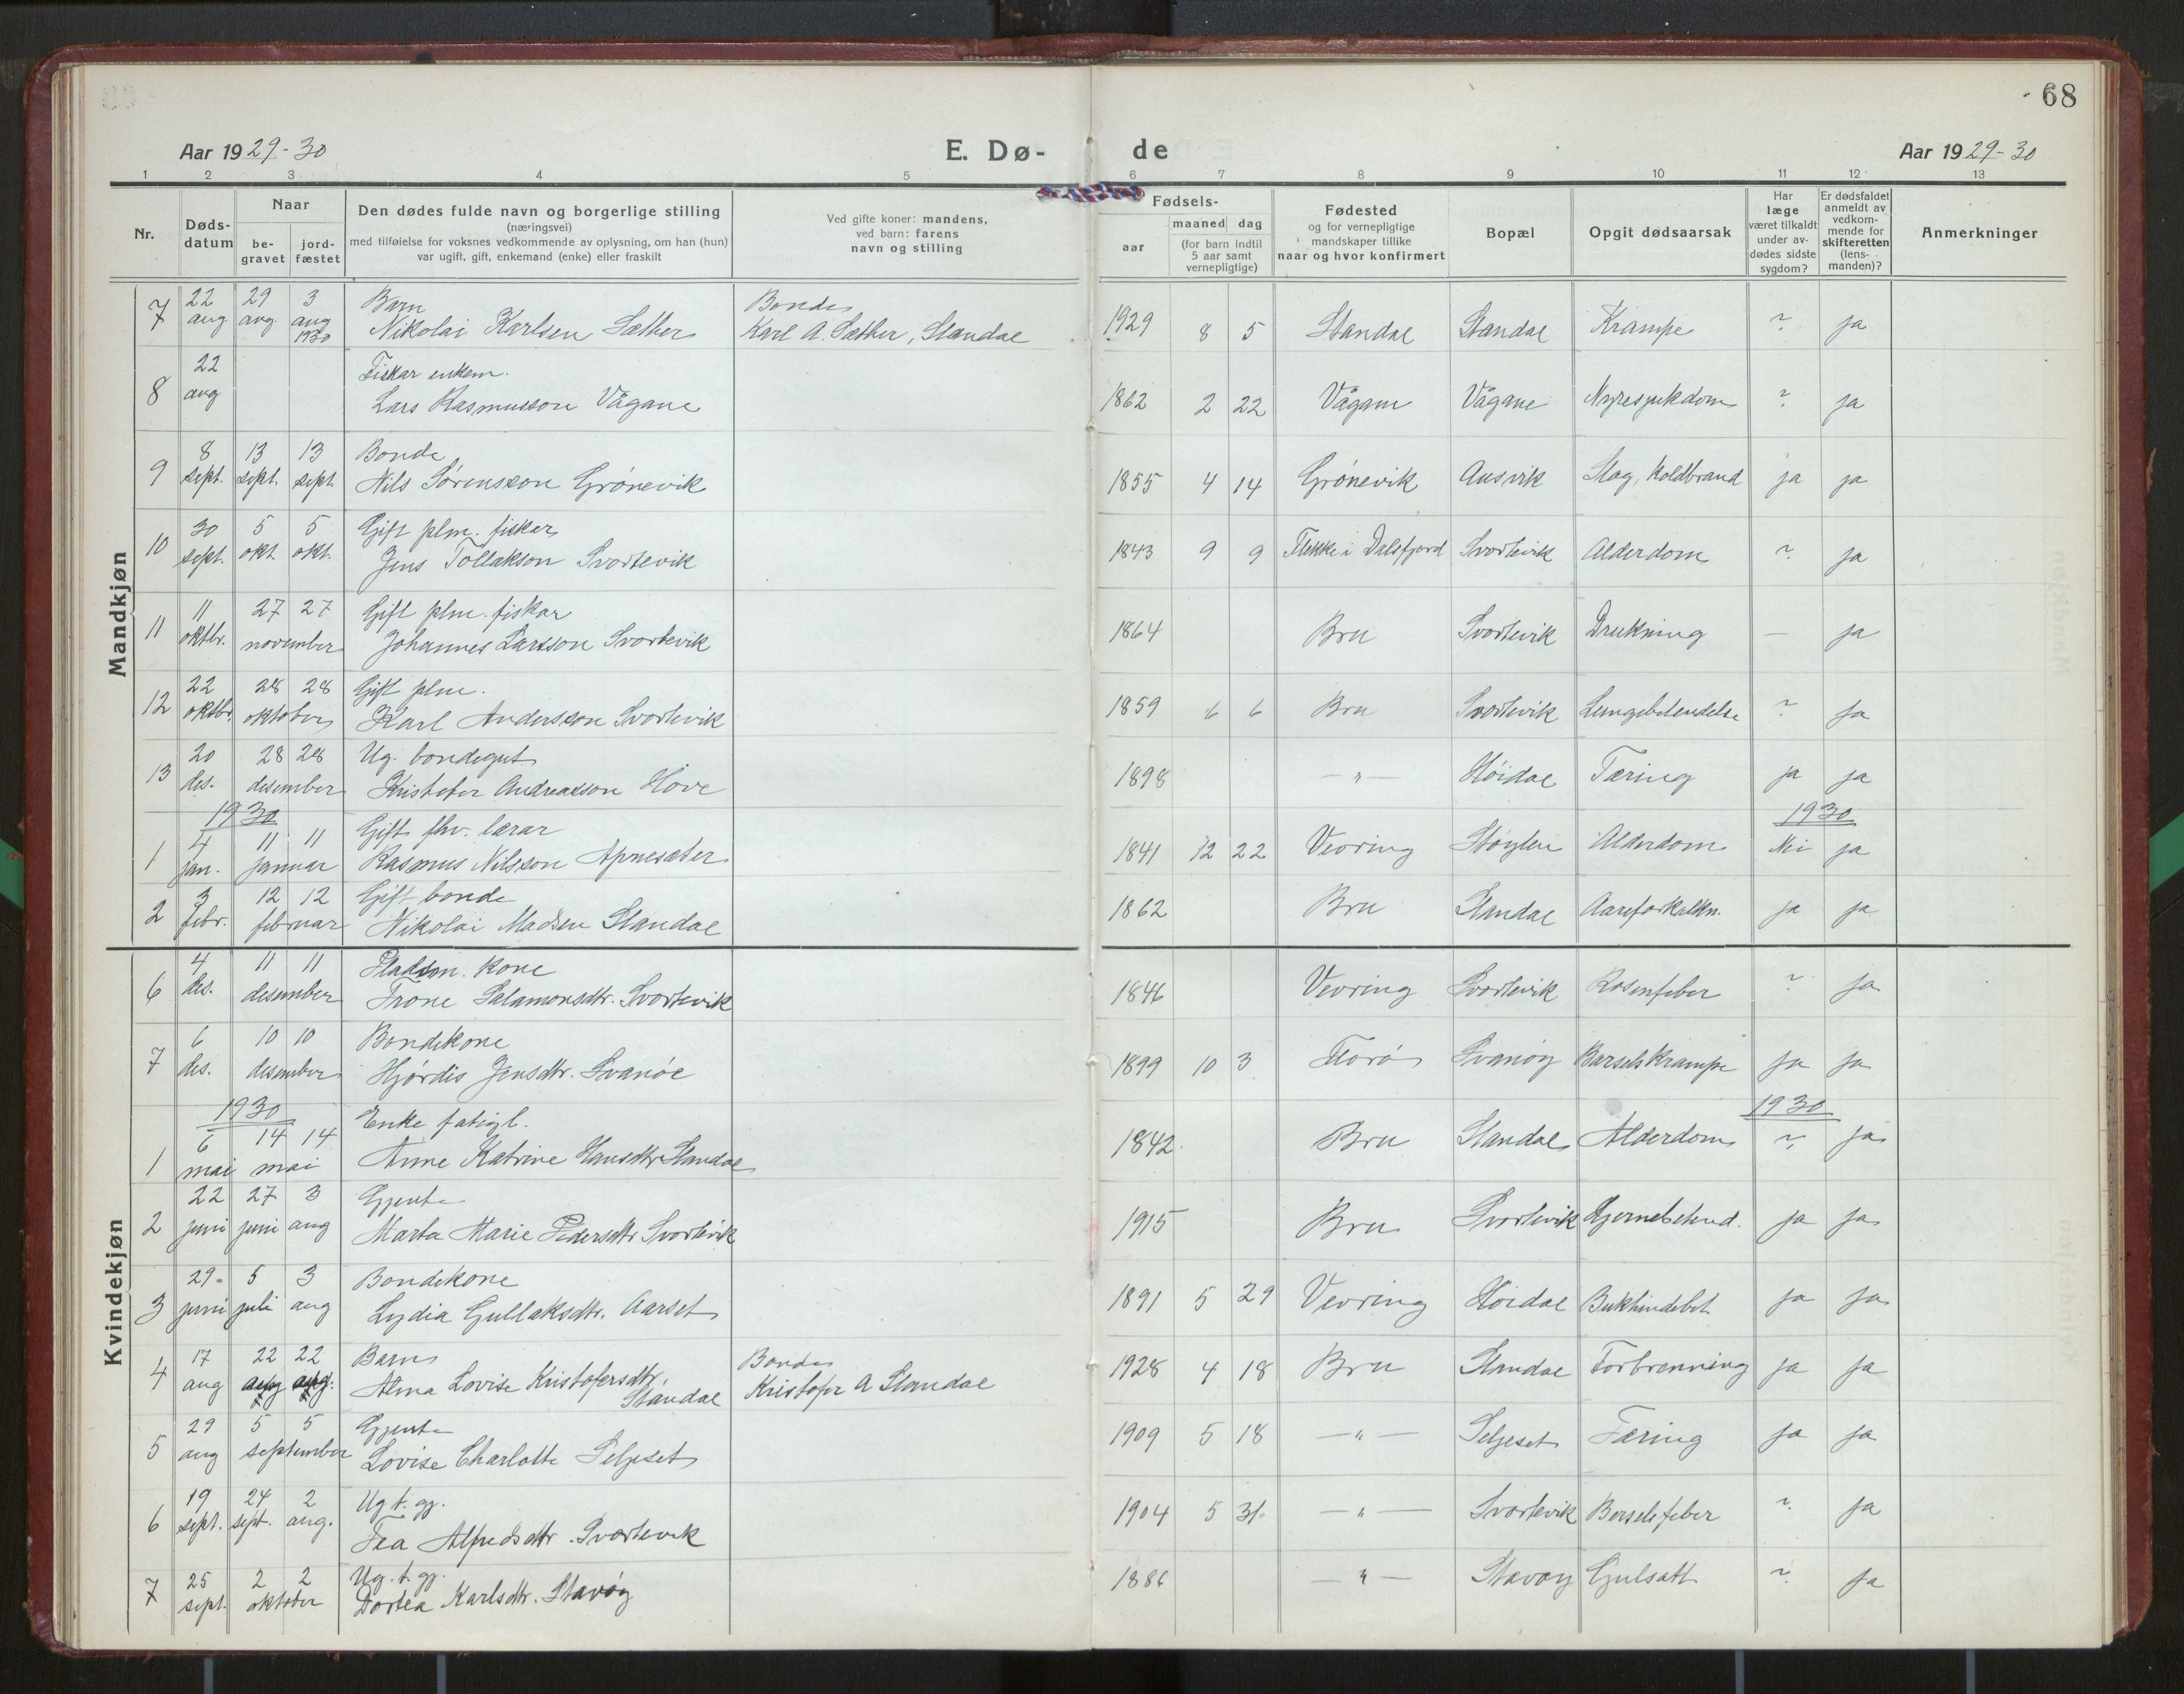 68
Aar 1929-30
E. Dø-
de
Aar 1929-30
1 2 3 4 5 6 7 8 9 10 11 12 13
Nr.
Døds-
datum
Naar
be-
gravet
jord-
fæstet
Den dødes fulde navn og borgerlige stilling
(næringsvei)
med tilføielse for voksnes vedkommende av oplysning, om han (hun)
var ugift, gift, enkemand (enke) eller fraskilt
Ved gifte koner: mandens,
ved barn: farens
navn og stilling
Fødsels-
aar
maaned dag
(for barn indtil
5 aar samt
vernepligtige)
Fødested
og for vernepligtige
mandskaper tillike
naar og hvor konfirmert
Bopæl
Opgit dødsaarsak
Har
læge
været tilkaldt
under av-
dødes sidste
sygdom?
Er dødsfaldet
anmeldt av
vedkom-
mende for
skifteretten
(lens-
manden)?
Anmerkninger
Mandkjøn
22 29 3 Barn Bonde
7 aug aug. aug Nikolai Karlsen Sæther Karl A. Sæther, Standal 1929 8 5 Standal Standal Krampe ? ja
1930
22 Fiskar enkem.
8 aug Lars Rasmusson Vågane 1862 2 22 Vågane Vågane Nyresjukdom ? ja
8 13 13 Bonde
9 sept. sept. sept. Nils Sørensson Grønevik 1855 4 14 Grønevik Ausvik Slag, Koldbrand ja ja
30 5 5 Gift plm. fiskar
10 sept. okt. okt. Jens Tollakson Svortevik 1843 9 9 Flekke i Dalsfjord Svortevik Alderdom ? ja
11 27 27 Gift plm. fiskar
11 oktbr. november Johannes Larsson Svortevik 1864 Bru Svortevik Drukning — ja
22 28 28 Gift plm.
12 oktbr. oktober Karl Andersson Svortevik 1859 6 6 Bru Svortevik Lungebetendelse ? ja
20 28 28 Ug. bondegut
13 des. desember Kristofer Andreasson Hove 1898 — " — Høidal Tæring ja ja
1930 1930
4 11 11 Gift fhv. lærar
1 jan. januar Rasmus Nilsson Apnesæter 1841 12 22 Vevring Støylen Alderdom Nei ja
3 12 12 Gift bonde
2 febr. februar Nikolai Madsen Standal 1862 Bru Standal Aareforkalkn. ja ja
Kvindekjøn
4 11 11 Pladsm. kone
6 des. desember Trone Salamonsdtr. Svortevik 1846 Vevring Svortevik Rosenfeber ? ja
6 10 10 Bondekone
7 des. desember Hjørdis Jensdtr. Svanøe 1899 10 3 Florø Svanøy Barselskrampe ja ja
1930 1930
6 14 14 Enke fatigl.
1 mai mai Anne Katrine Hansdtr Standal 1842 Bru Standal Alderdom ? ja
22 27 3 Gjente
2 juni juni aug Marta Marie Pedersdtr Svortevik 1915 Bru Svortevik Hjernebetend. ja ja
29 5 3 Bondekone
3 juni juli aug Lydia Gullaksdtr. Aarset 1891 5 29 Vevring Høidal Bukhindebet ja ja
17 22 22 Barn Bonde
4 aug aug aug. Alma Lovise Kristofersdtr. Kristofer A Standal 1928 4 18 Bru Standal Forbrenning ja ja
Standal
29 5 5 Gjente
5 aug september Lovise Charlotte Seljeset 1909 5 18 — " — Seljeset Tæring ja ja
19 24 2 Ug t. gj.
6 sept. sept. aug. Fea Alfredsdtr. Svortevik 1904 5 31 — " — Svortevik Barselsfeber ? ja
25 2 2 Ug. t. gj.
7 sept. oktober Dortea Karlsdtr. Stavøy 1886 — " — Stavøy Gulsott ? ja